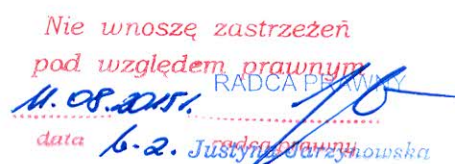 Nie wnoszę zastrzeżeń
pod względem prawnym
RADCA PRAWNY
11.08.2015r.
data radca prawny
Justyna Jarzynowska